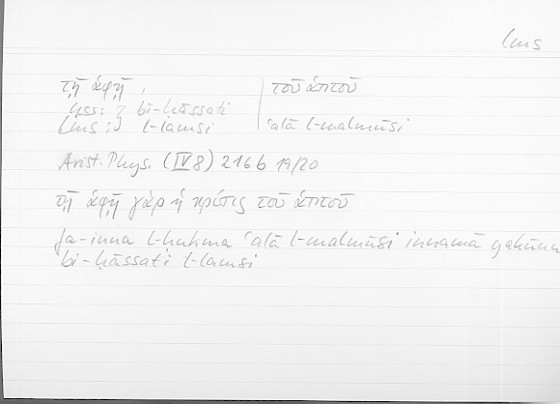 lms
τῇ ἁφῇ, | τοῦ ἁπτοῦ
ḥss: bi-ḥāssati
lms: l-lamsi | ʿalā l-malmūsi
Arist. Phys. (IV 8) 216b 19/20
τῇ ἁφῇ γὰρ ἡ κρίσις τοῦ ἁπτοῦ
fa-inna l-ḥukma ʿalā l-malmūsi innamā yakūnu
bi-ḥāssati l-lamsi